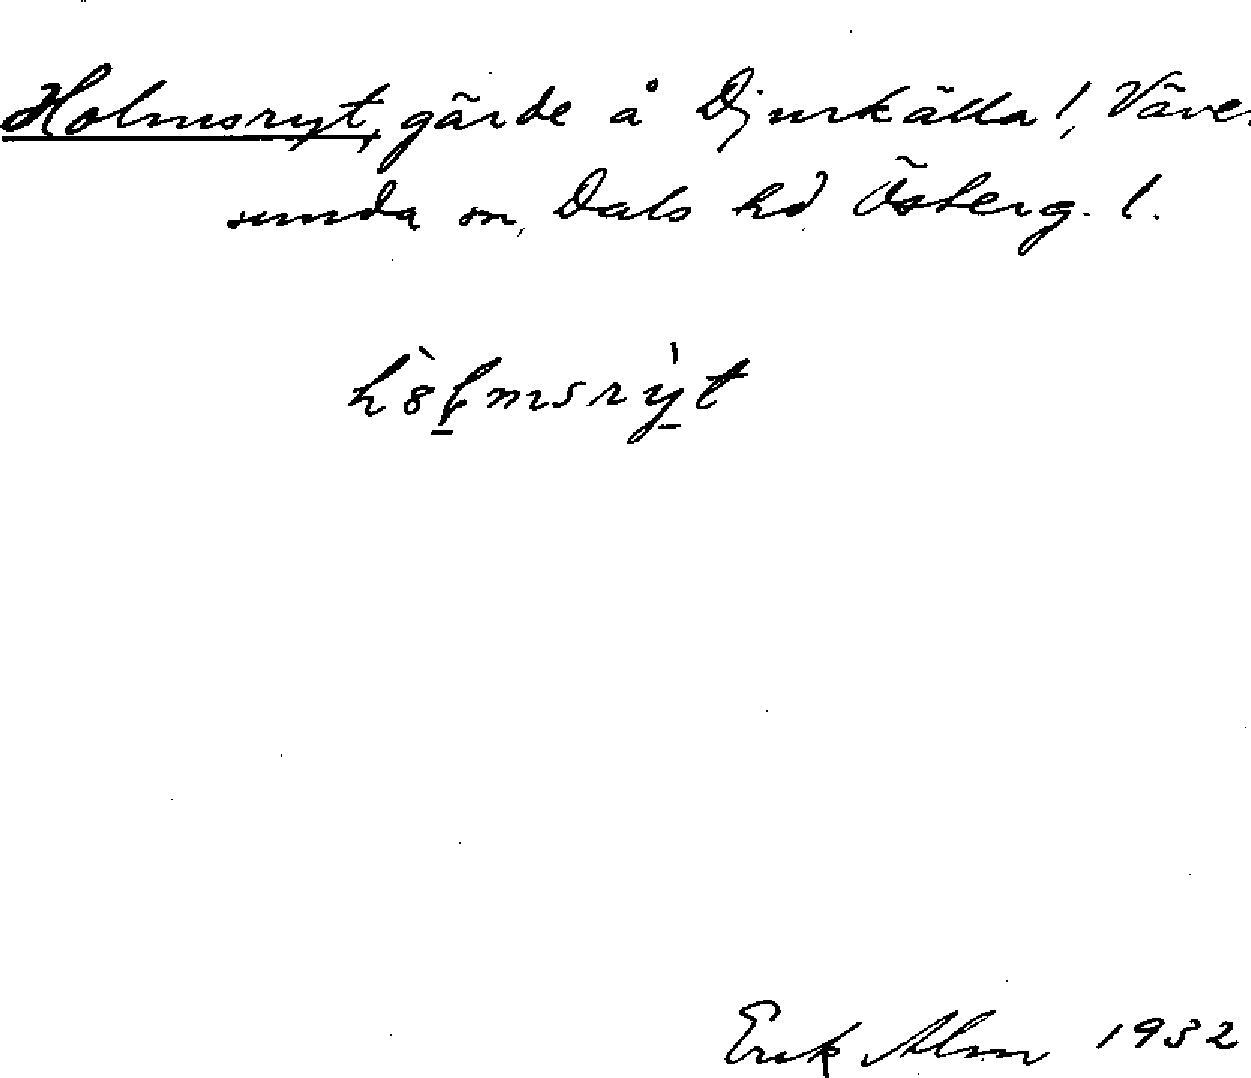 Holmsryt, gärde å Djurkälla !, Väver-
sunda sn, Dals hd Österg. l.
hòlmsry̍t
Erik Alm 1932